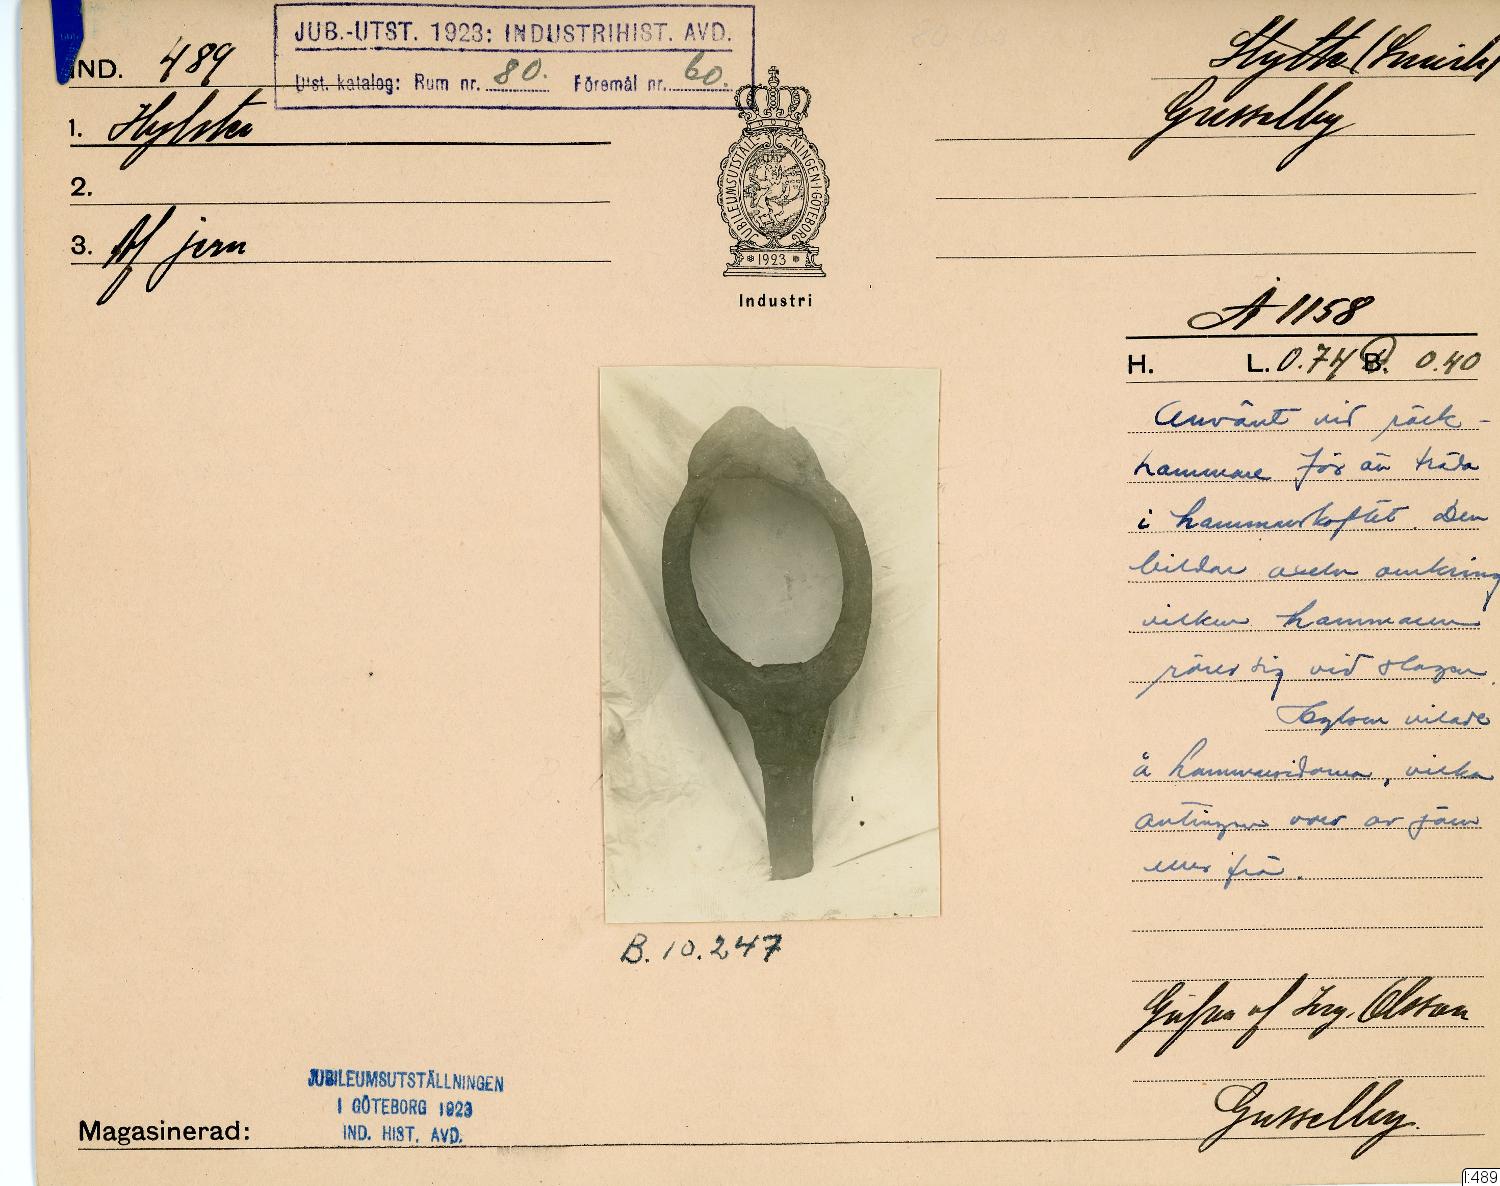 JUB.-UTST. 1923: INDUSTRIHIST. AVD.
Utst. katalog: Rum nr. 80. Föremål nr. 60.
IND. 489
1. Hylsta
2.
3. Af jern
JUBILEUMSUTSTÄLLNINGEN I GÖTEBORG
1923
Industri
Gusselby
A 1158
H. L. 0.74 B. 0.40
Använt vid räck-
hammare för än träda
i hammarskaftet. Den
bildar axeln omkring
vilken hammaren
rörer sig vid slagen.
Hylsan vilade
å hammarsidorna, vilka
antingen voro av järn
eller trä.
B. 10.247
Gåfva af Ing. Olsson
Gusselby.
JUBILEUMSUTSTÄLLNINGEN
I GÖTEBORG 1923
IND. HIST. AVD.
Magasinerad:
I:489